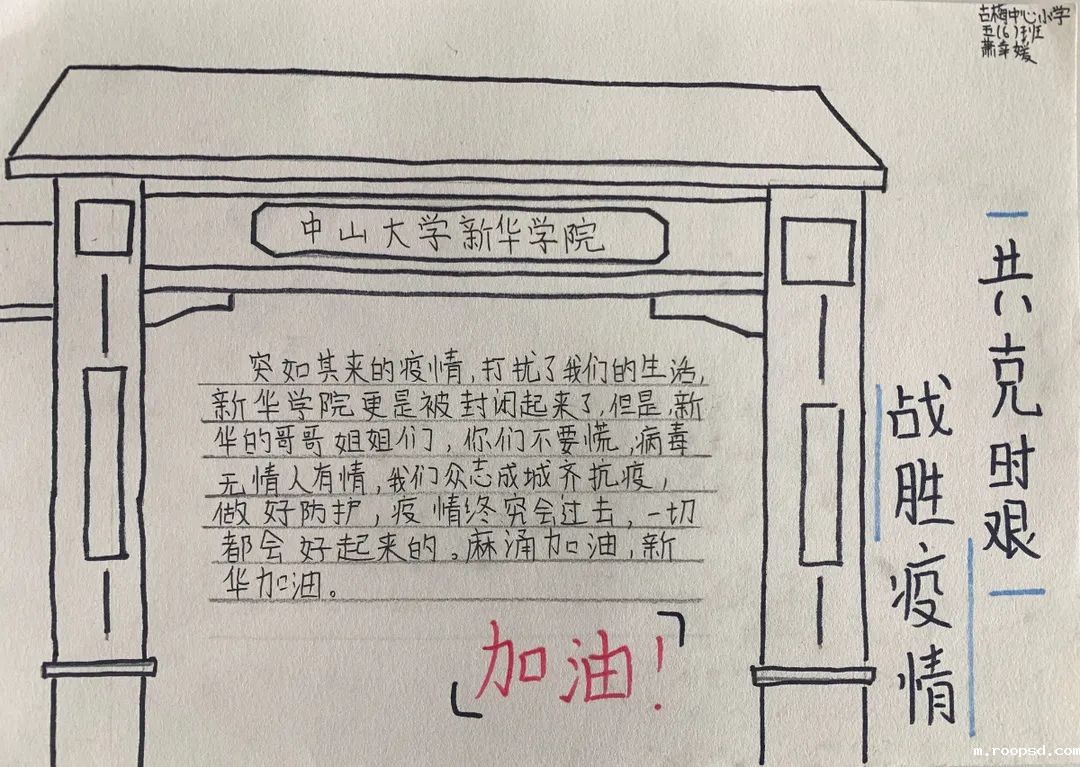 古梅中心小学
五(6)班
萧幸媛
中山大学新华学院
突如其来的疫情,打扰了我们的生活,
新华学院更是被封闭起来了,但是,新
华的哥哥姐姐们,你们不要慌,病毒
无情人有情,我们众志成城齐抗疫,
做好防护,疫情终究会过去,一切
都会好起来的。麻涌加油,新
华加油。
加油!
共克时艰
战胜疫情
m.roopsd.com